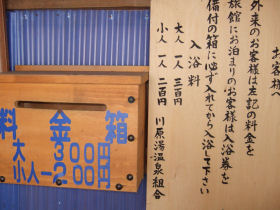 お客様へ
外来のお客様は左記の料金を
旅館にお泊まりのお客様は入浴券を
備付の箱に必ず入れてから入浴して下さい
入浴料
大人 一人 三百円
小人 一人 二百円
川原湯温泉組合
料金箱
大 300円
小人-200円